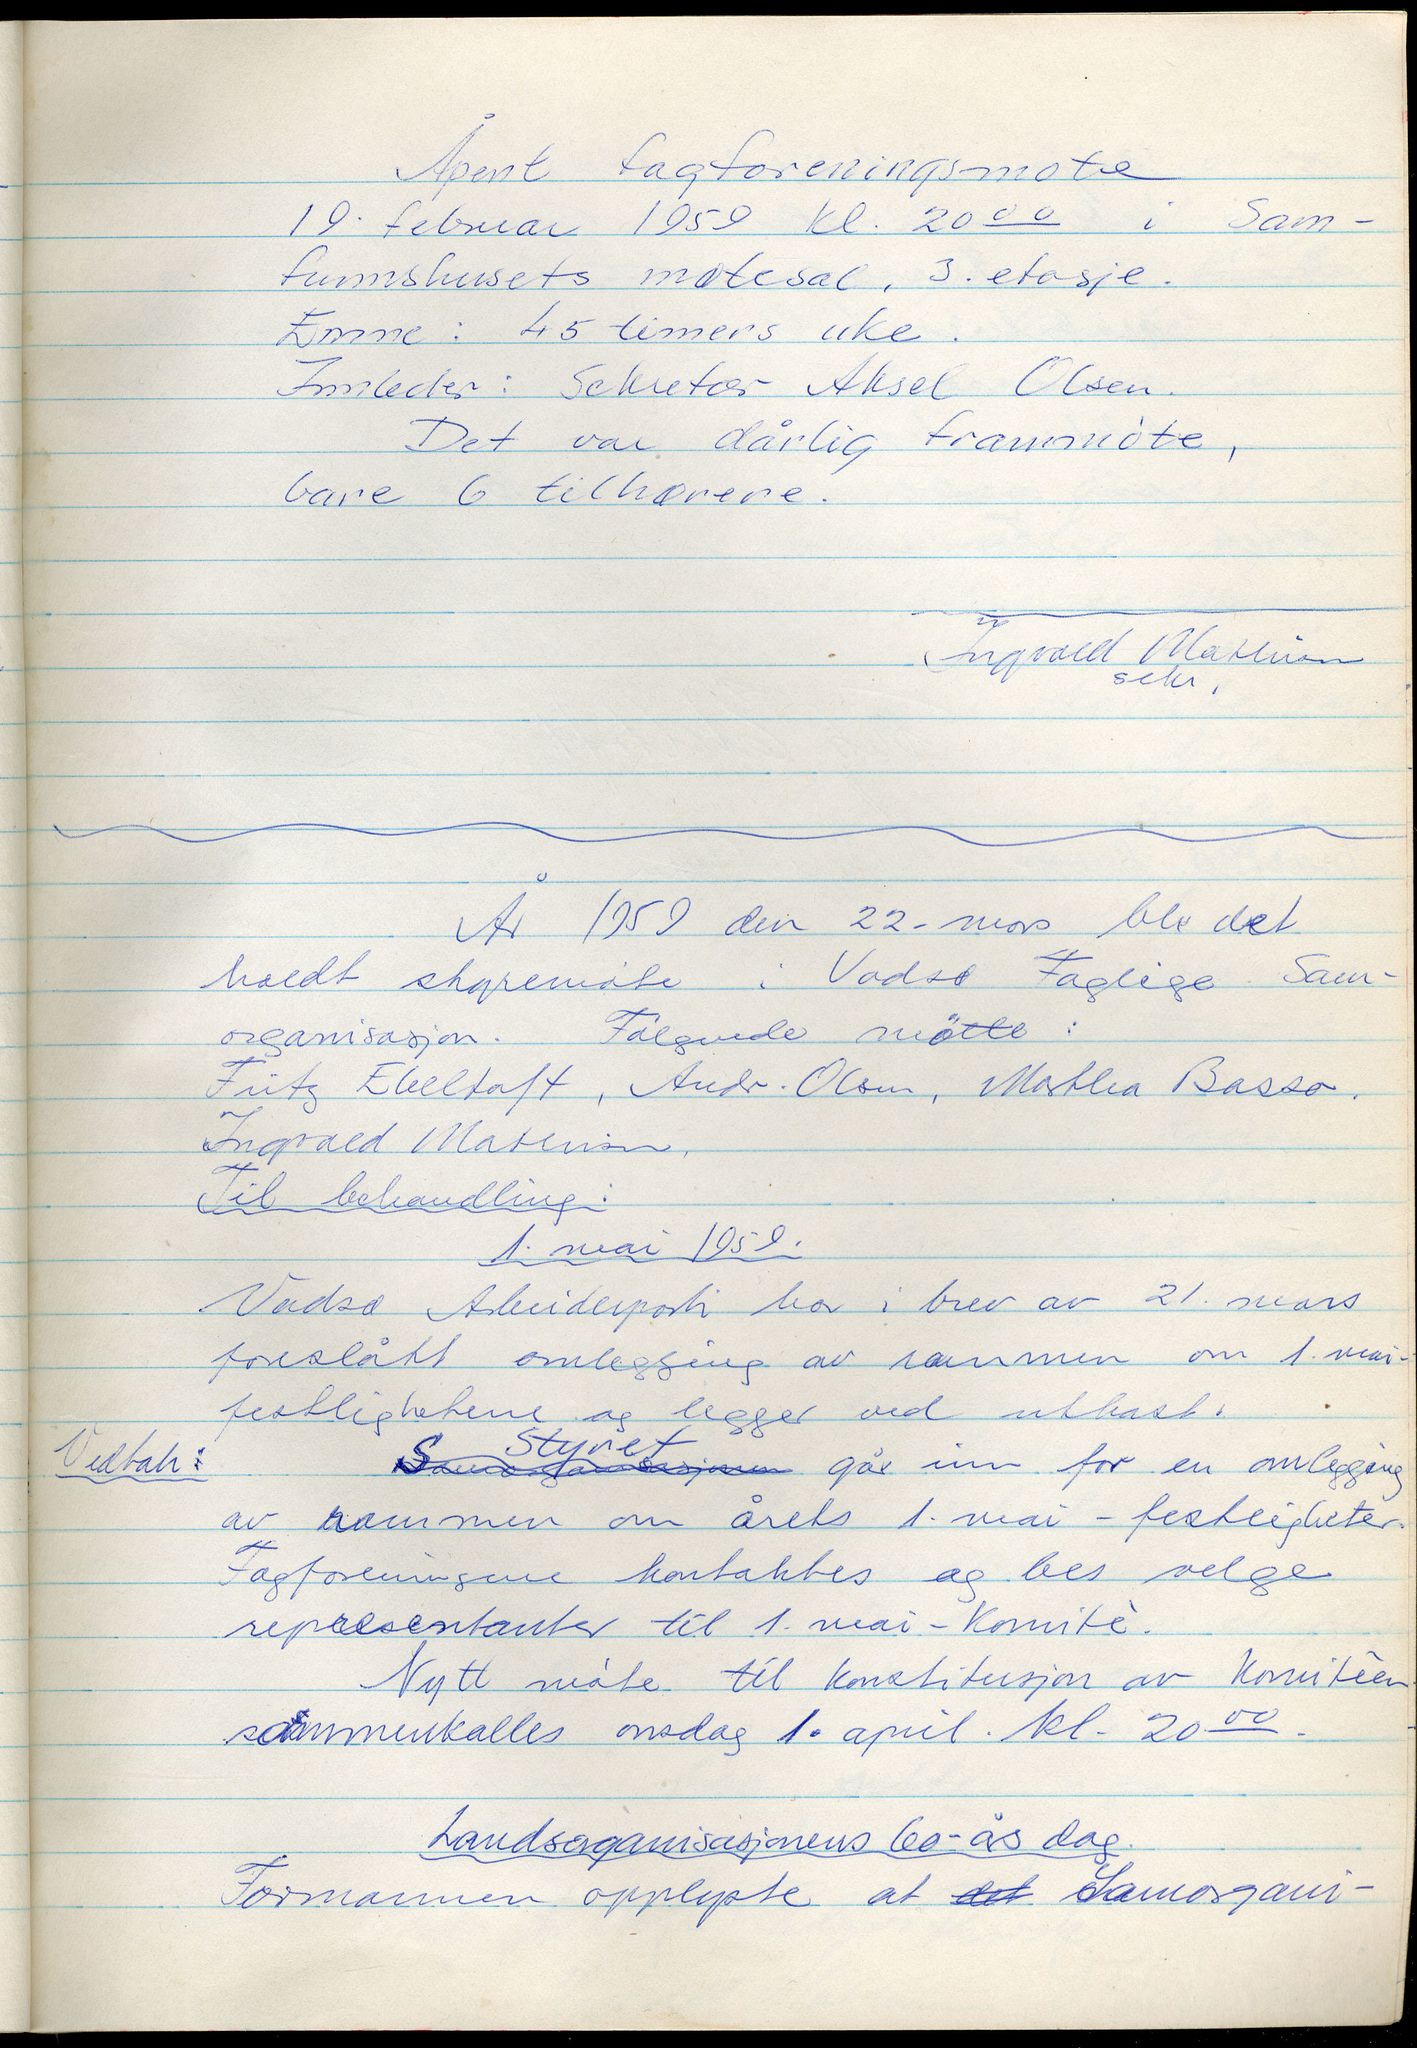 Åpent fagforeningsmøte
19. februar 1959 kl. 20 00 i Sam-
funnshusets møtesal, 3. etasje.
Emne: 45 timers uke.
Innleder: Sekretær Aksel Olsen.
Det var dårlig frammøte,
bare 6 tilhørere.
Ingvald Mathisen
sekr.
År 1959 den 22. mars ble det
holdt styremøte i Vadsø Faglige Sam-
organisasjon. Følgende møtte:
Fritz Ebeltoft, Andr. Olsen, Marthea Basso.
Ingvald Mathisen.
Til behandling:
1. mai 1959.
Vadsø Arbeiderparti har i brev av 21. mars
foreslått omlegging av rammen om 1. mai-
festlighetene og legger ved utkast.
Vedtak: Samorganisasjonen Styret går inn for en omlegging
av rammen om årets 1. mai - festligheter.
Fagforeningene kontaktes og bes velge
representanter til 1. mai - Komitè.
Nytt møte til konstitusjon av Komitèen
sammenkalles onsdag 1. april. kl. 20 00.
Landsorganisasjonens 60-års dag.
Formannen opplyste at det Samorgani-